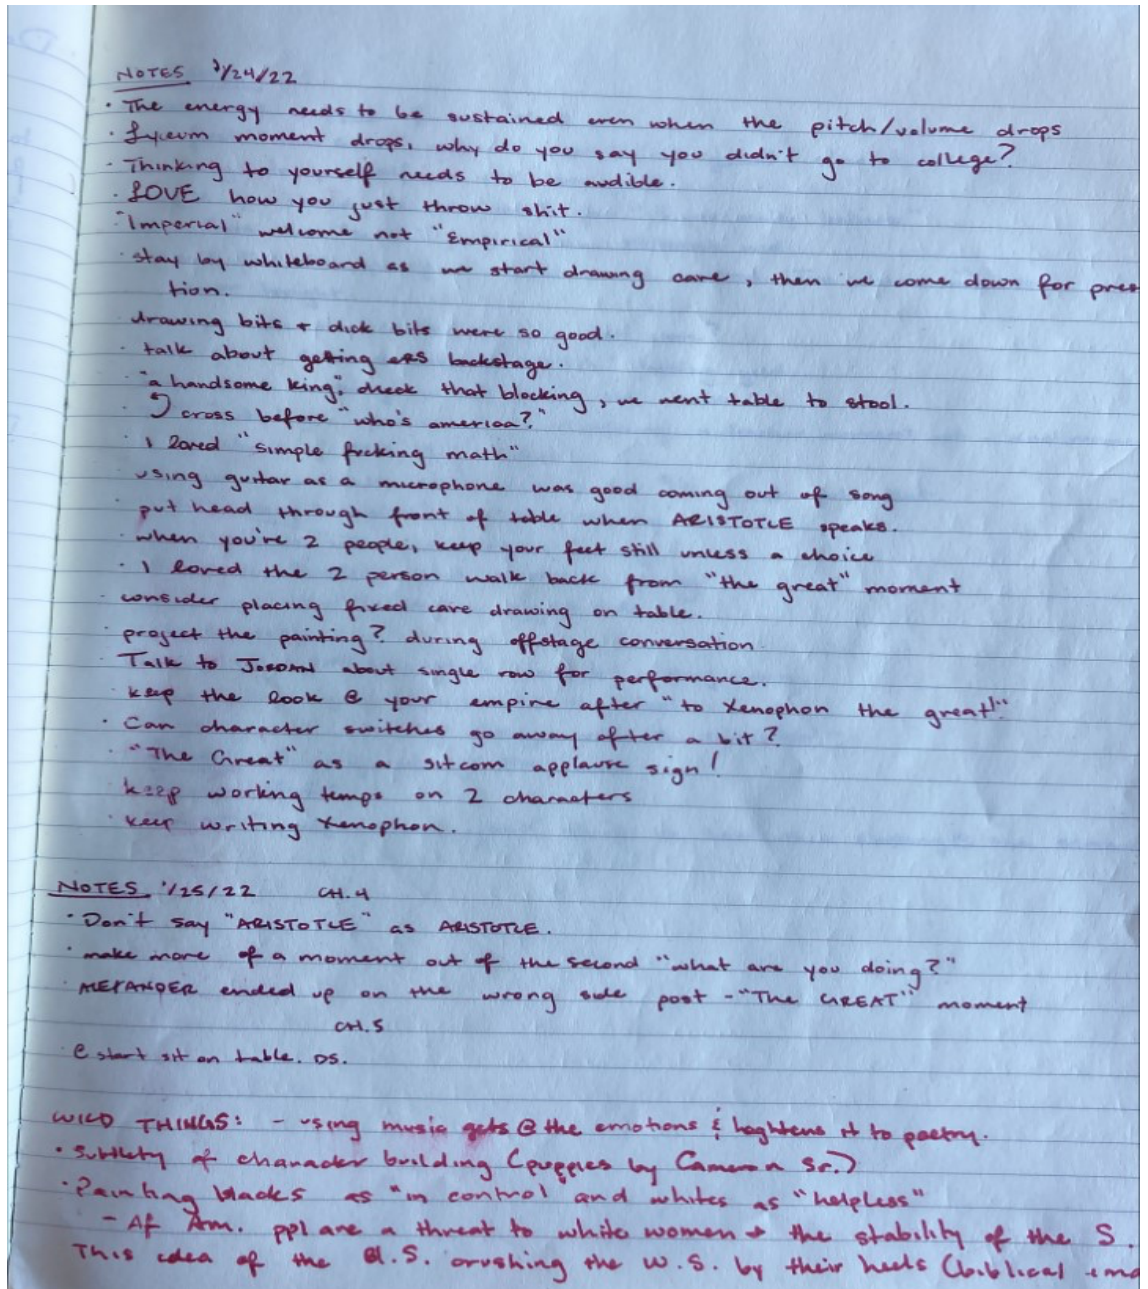 NOTES 1/24/22
· The energy needs to be sustained even when the pitch/volume drops
· Lyceum moment drops, why do you say you didn't go to college?
· Thinking to yourself needs to be audible.
· LOVE how you just throw shit.
· "Imperial" welcome not "Empirical"
· stay by whiteboard as we start drawing cave, then we come down for
tion.
drawing bits + dick bits were so good.
· talk about getting backstage.
· "a handsome king", check that blocking, we went table to stool.
cross before "who's america?"
· I loved "simple fucking math"
using guitar as a microphone was good coming out of song
put head through front of table when ARISTOTLE speaks.
· when you're 2 people, keep your feet still unless a choice
· I loved the 2 person walk back from "the great" moment
· consider placing fixed cave drawing on table.
· project the painting? during offstage conversation
· Talk to JORDAN about single row for performance.
· keep the look @ your empire after "to Xenophon the great!"
· Can character switches go away after a bit?
· "The Great" as a sitcom applause sign!
keep working temps on 2 characters
· keep writing Xenophon.
NOTES 1/25/22 CH. 4
· Don't say "ARISTOTLE" as ARISTOTLE.
· make more of a moment out of the second "what are you doing?"
· ALEXANDER ended up on the wrong side post - "The GREAT" moment
CH. 5
· @ start sit on table. DS.
WILD THINGS: - using music gets @ the emotions & heightens it to poetry.
· Subtlety of character building (puppies by Cameron Sr.)
· Painting blacks as "in control and whites as "helpless"
- Af Am. ppl are a threat to white women + the stability of the S.
This idea of the B.S. crushing the W.S. by their heels (biblical